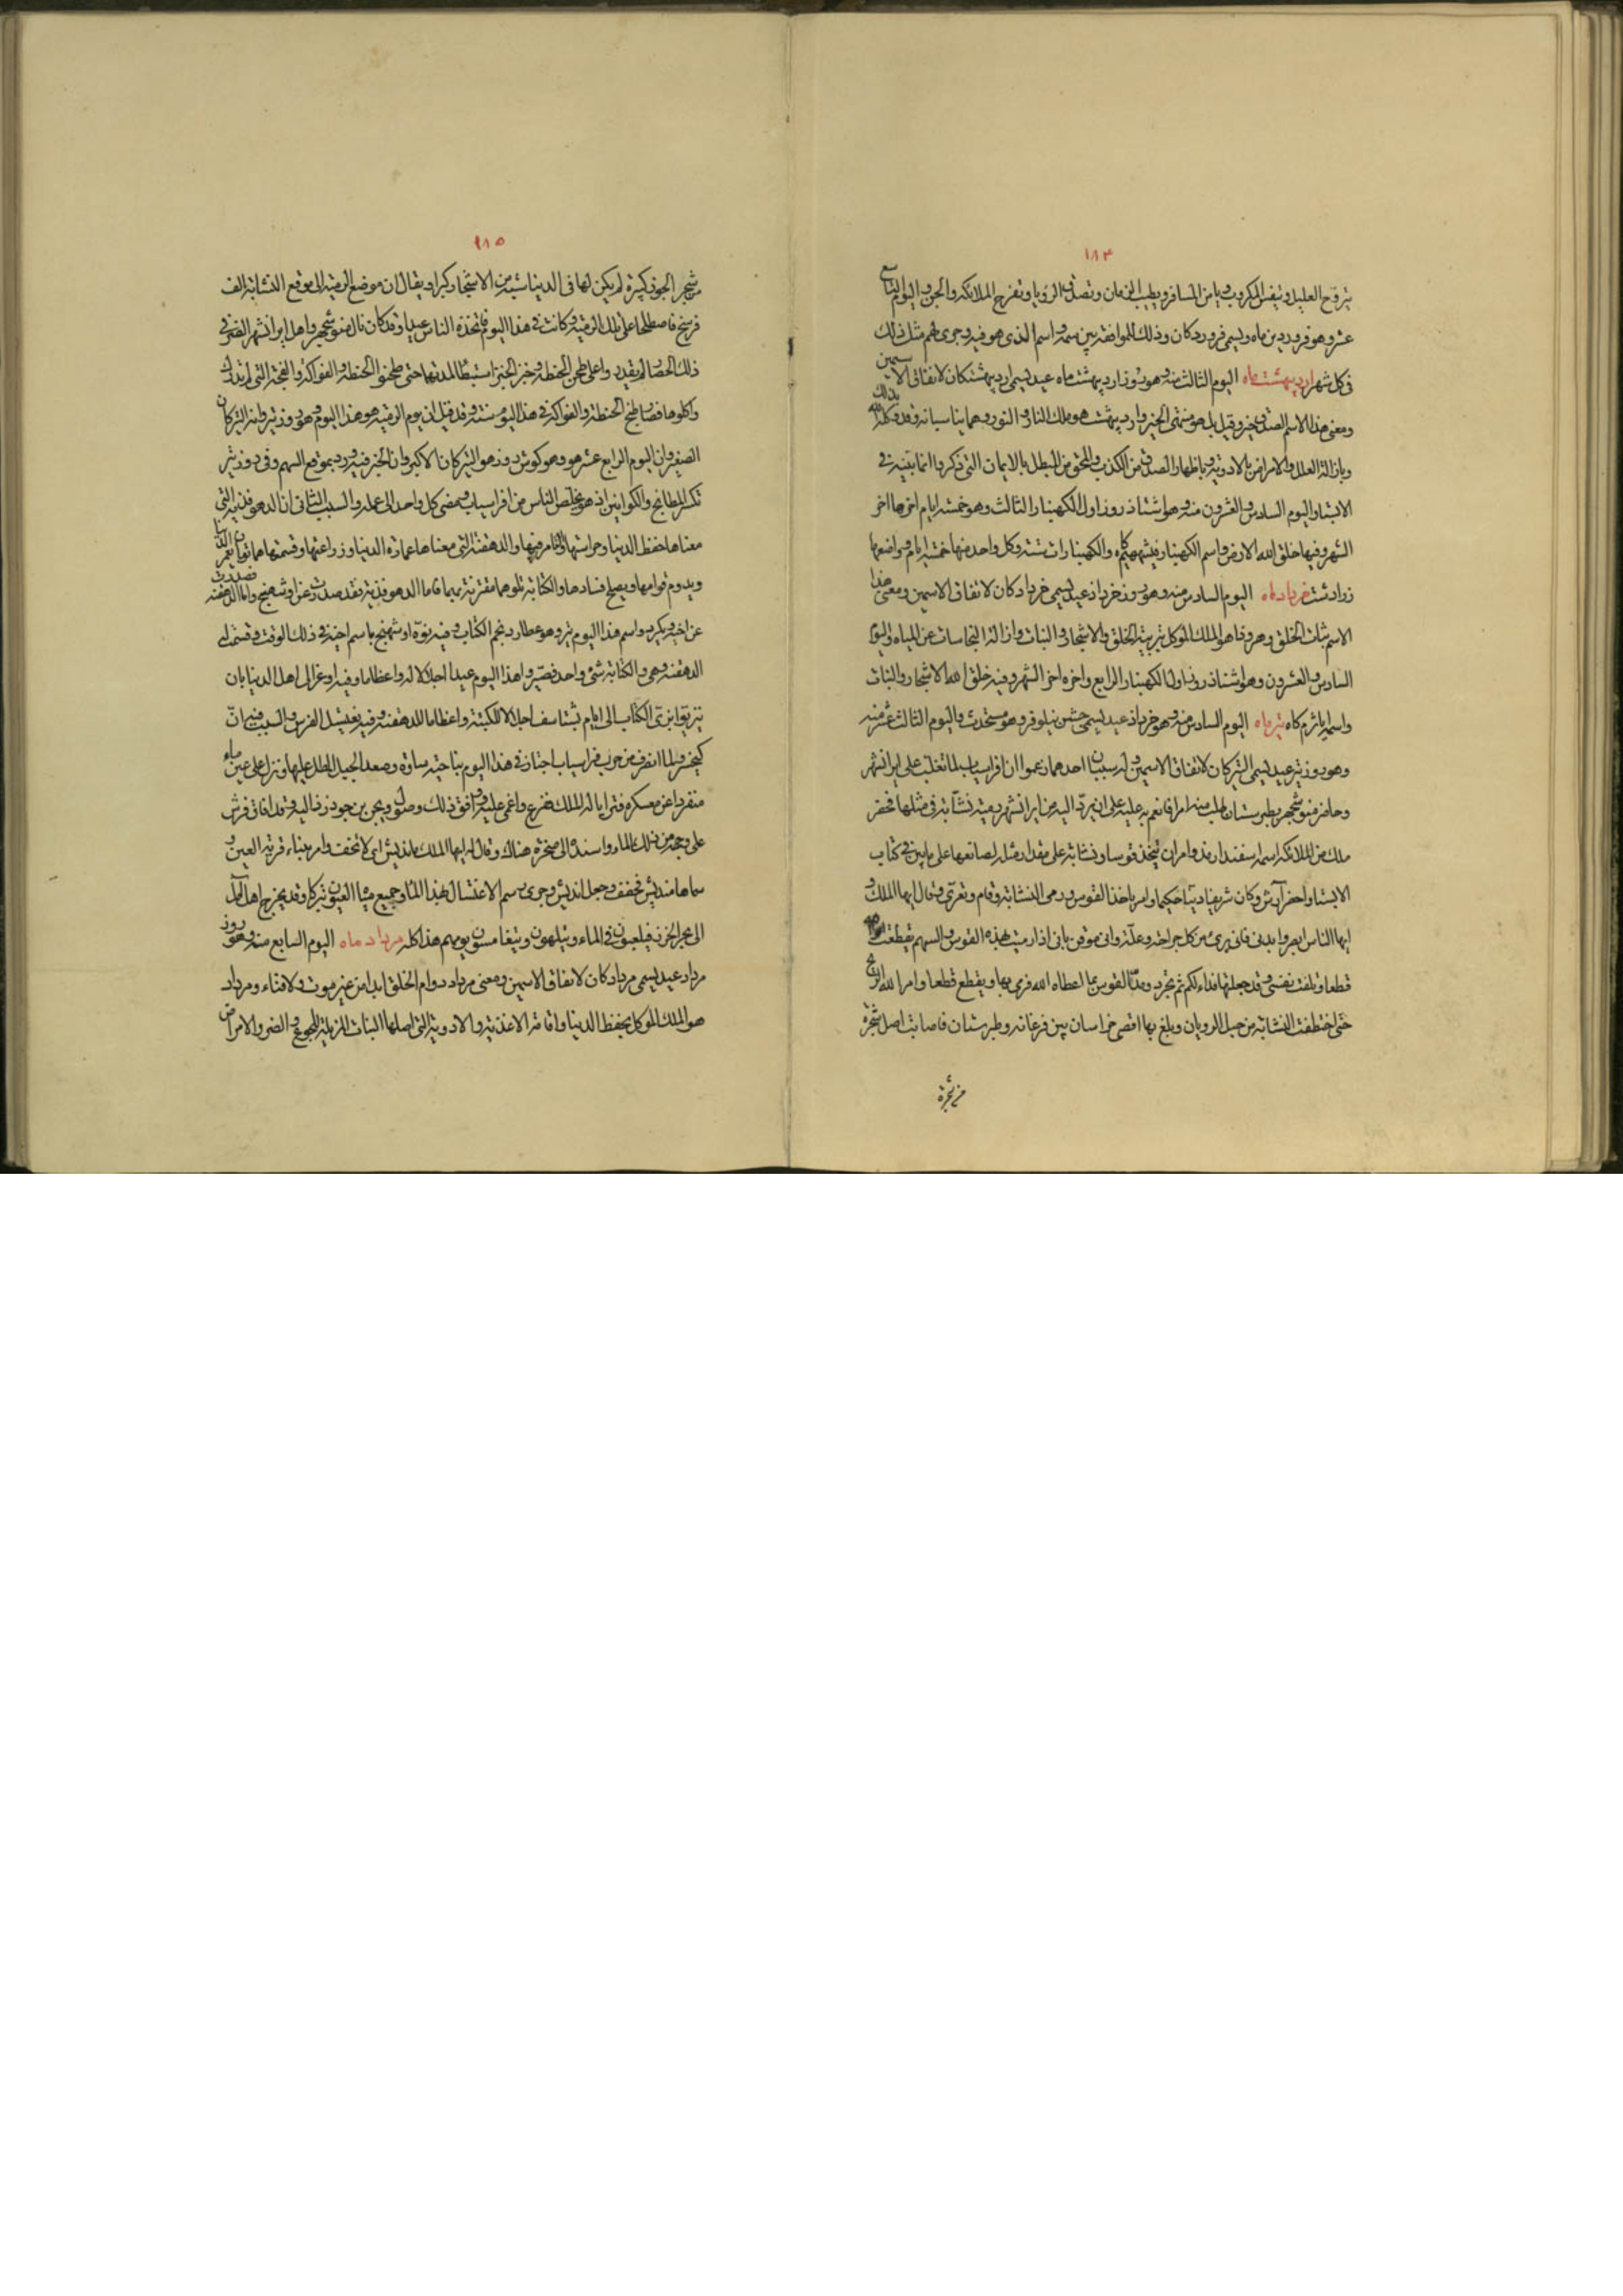 ١٨٤
يتروح العليل ويتنفس المكروب ويامن المسافر ويطيب الزمان وتصدق الرويا وتفرح الملائكة والجن واليوم التاسع
عشر وهو فروردين ماه ويسمى فروردكان وذلك للموافقة بين سمه واسم الذى هو فيه وجرى لهم مثل ذلك
فى كل شهر ارديبهشت ماه اليوم الثالث منه وهو روز ارديبهشت ماه عيد يسمى ارديبهشتكان لاتفاق الاسمين
ومعنى هذا الاسم الصدق خير وقيل بل هو منتهى الخير وارديبهشت هو ملك النار والنور وهما يناسبانه وقد وكله الله بذلك
وبازالة العلل والامراض بالادوية وباظهار الصدق من الكذب والمحق من المبطل بالايمان التى ذكروا انها بينة فى
الابستا واليوم السادس والعشرون منه وهو اشتاذ روز اول الكهنبار الثالث وهو خمسة ايام اخرها اخر
الشهر وفيها خلق الله الارض واسم الكهنبار فيشهيم كاه والكهنبارات ستة وكل واحد منها خمسة ايام وواضعها
زرادشت خرداد ماه اليوم السادس منه وهو روز خرداذ عيد يسمى خردادكان لاتفاق الاسمين ومعنى هذا
الاسم ثبات الخلق وهروذا هو الملك الموكل بتربية الخلق والاشجار والنبات وازالة النجاسات عن المياه واليوم
السادس والعشرون وهو اشتاذ روز اول الكهنبار الرابع واخره اخر الشهر وفيه خلق الله الاشجار والنبات
واسمه اياثرم كاه تير ماه اليوم السادس منه وهو خرداذ عيد يسمى جشن نيلوفر وهو مستحدث واليوم الثالث عشر منه
وهو روز تير عيد يسمى التيركان لاتفاق الاسمين وله سببان احدهما زعموا ان افراسياب لما تغلب على ايرانشهر
وحاصر منوشجهر بطبرستان طلب منه امرا فانعم به عليه على ان يرد اليه من ايرانشهر رمية نشابة فى مثلها فحضر
ملك من الملائكة اسمه اسفندارمذ وامر ان يتخذ قوسا ونشابة على مقدار مثله لصانعها على ما بين فى كتاب
الابستا واحضر آرش وكان شريفا دينا حكيما وامر باخذ القوس ورمى النشابة وقام وتعرى وقال ايها الملك و
ايها الناس ابصروا بدنى فانى برئ من كل جراحة وعلة وانى موقن بانى اذا رميت بهذه القوس والسهم تقطعت
قطعا وتلفت نفسى وقد جعلتها فداء لكم ثم تجرد ومد القوس بما اعطاه الله فرمى بها وتقطع قطعا وامر الله الريح
حتى اختطفت النشابة من جبل الرويان وبلغ بها اقصى خراسان بين فرغانه وطبرستان فاصابت اصل شجرة
من شجرة
١٨٥
من شجر الجوز كبيرة لم يكن لها فى الدنيا شبيه من الاشجار كبرا ويقال ان موضع الرمية الى موقع النشابة الف
فرسخ فاصطلحا على تلك الرمية وكانت فى هذا اليوم فاتخذه الناس عيدا وقد كان نال منوشجهر واهل ايرانشهر الضر فى
ذلك الحصار لم يقدروا على طحن الحنطة وخبز الخبز استبطا لمدتها حتى طبخوا الحنطة والفواكه الفجة التى لم تدرك
واكلوها فصار طبخ الحنطة والفواكه فى هذا اليوم سنة وقد قيل ان يوم الرمية هو هذا اليوم وهو روز تير وانه التيركان
الصغير وان اليوم الرابع عشر هو وهو كوش روز هو التيركان الاكبر وان الخبر فيه ورد بموقع السهم وفى روز تير
تكسر المطابخ والكوانين اذ هو تخلص الناس من افراسياب ومضى كل واحد الى عمله والسبب الثانى ان الدهوفذية التى
معناها حفظ الدنيا وحراستها والتامر فيها والدهقنة التى معناها عمارة الدنيا وزراعتها وقسمتها هما توامان الدنيا تعمر
ويدوم قوامها ويصلح فسادها والكتابة تلوهما مقترنة بهما فاما الدهوفذية فقد صدرت عن اوشهنج واما الدهقنة فصدرت
عن اخيه ويكرد واسم هذا اليوم تير وهو عطارد نجم الكتاب وفيه نوه اوشهنج باسم اخيه فى ذلك الوقت وقسم له
الدهقنة وهى والكتابة شئ واحد فصيروا هذا اليوم عيدا اجلالا له واعظاما وفيه اوعز الى اهل الدنيا بان
يتزيوا بزى الكتاب الى ايام بشتاسف اجلالا للكتبة واعظاما للدهقنة وفيه يغتسل الفرس والسبب فيه ان
كيخسرو لما انصرف من حرب افراسياب اجتاز فى هذا اليوم بناحية ساوة وصعد الجبل المطل عليها ونزل على عين ماء
منفردا عن معسكره فترايا له الملك ففزع واغمى عليه ووافق ذلك وصول ويجن بن جودرز اليه وقد افاق فرش
على وجهه من ذلك الماء واسنده الى صخرة هناك وقال له ايها الملك مانديش اى لا تخف وامر ببناء قرية العين و
سماها منديش فخفف وجعل انديش وجرى رسم الاغتسال بهذا الماء وجميع مياه العيون تبركا وقد يخرج اهل آمل
الى بحر الخزر فيلعبون فى الماء ويتلهون ويتغامسون يومهم هذا كله مرداد ماه اليوم السابع منه وهو روز
مرداد عيد يسمى مردادكان لاتفاق الاسمين ومعنى مرداد دوام الخلق ابدا من غير موت ولا فناء ومرداد
هو الملك الموكل بحفظ الدنيا واقامة الاغذية والادوية التى اصلها النبات المزيلة للجوع والضر والامراض